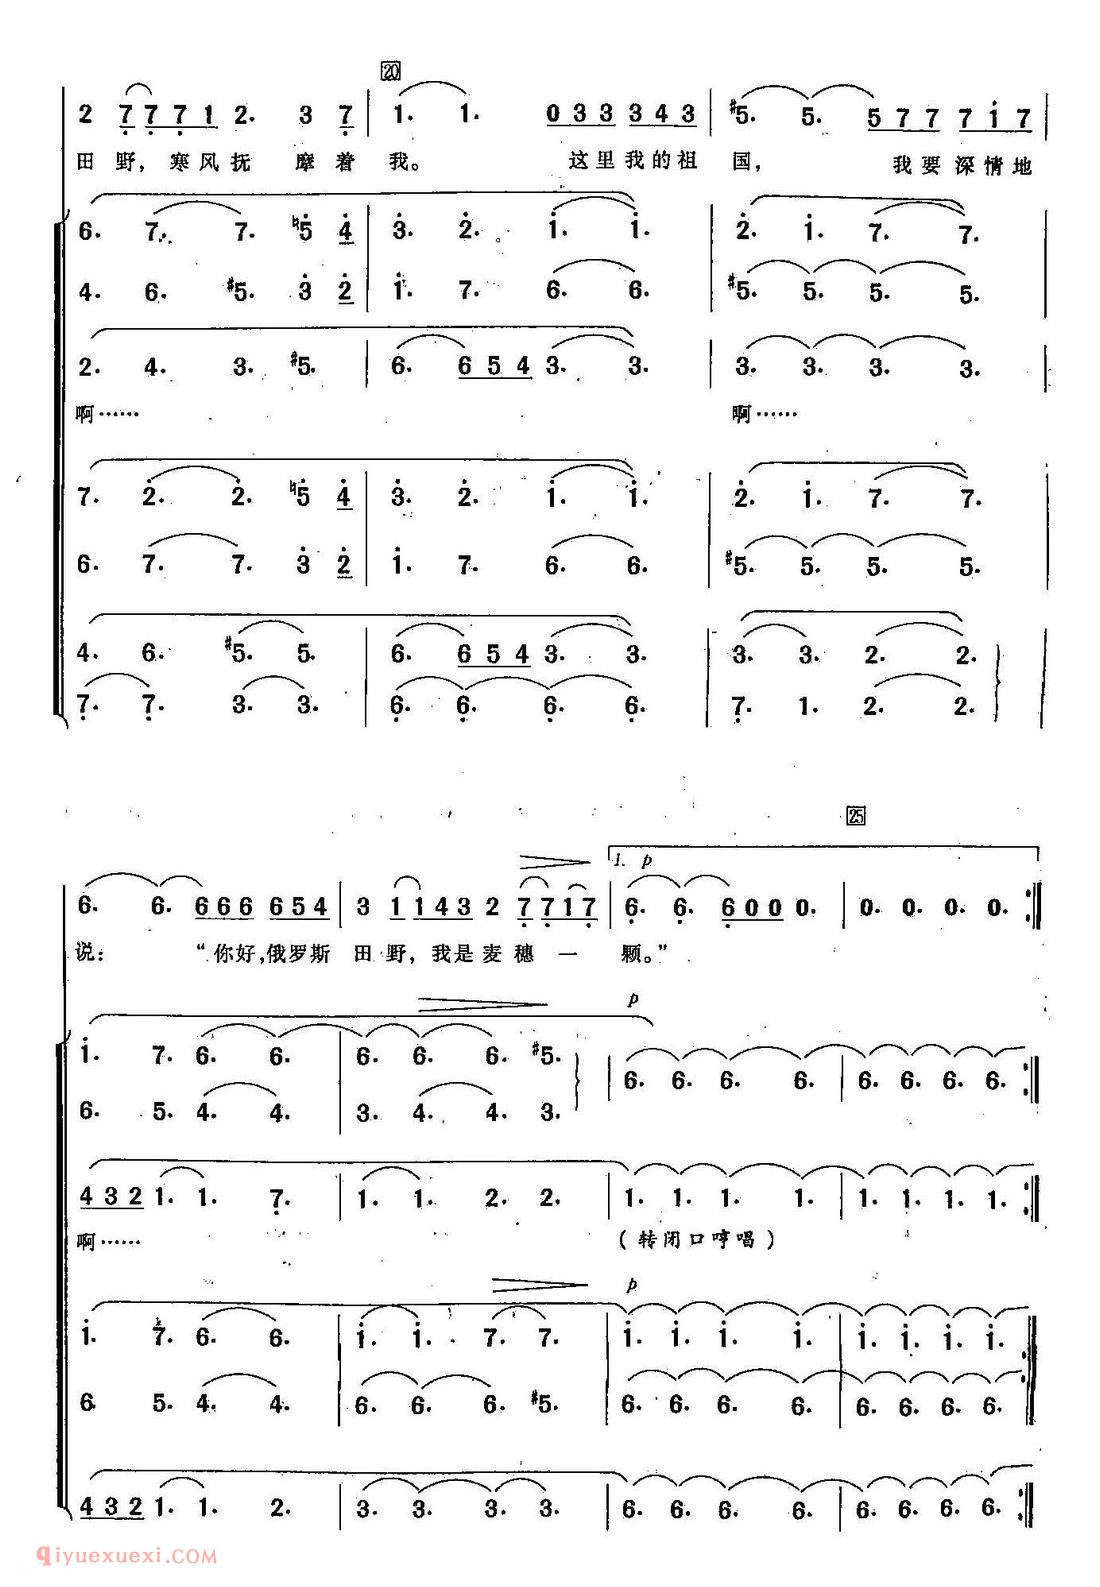 20
2 7 7 7 1 2. 3 7 | 1. 1. 0 3 3 3 4 3 | #5. 5. 5 7 7 7 1 7
田 野, 寒 风 抚 摩 着 我。 这 里 我 的 祖 国, 我 要 深 情 地
6. 7. 7. ♮5 4 | 3. 2. 1. 1. | 2. 1. 7. 7.
4. 6. #5. 3 2 | 1. 7. 6. 6. | #5. 5. 5. 5.
2. 4. 3. #5. | 6. 6 5 4 3. 3. | 3. 3. 3. 3.
啊…… 啊……
7. 2. 2. ♮5 4. | 3. 2. 1. 1. | 2. 1. 7. 7.
6. 7. 7. 3 2 | 1. 7. 6. 6. | #5. 5. 5. 5.
4. 6. #5. 5. | 6. 6 5 4 3. 3. | 3. 3. 2. 2.
7. 7. 3. 3. | 6. 6. 6. 6. | 7. 1. 2. 2.
25
1. p
6. 6. 6 6 6 6 5 4 | 3 1 1 4 3 2 7 7 1 7 | 6. 6. 6 0 0 0. | 0. 0. 0. 0. :‖
说: “你 好, 俄 罗 斯 田 野, 我 是 麦 穗 一 颗。”
p
1. 7. 6. 6. | 6. 6. 6. #5. | 6. 6. 6. 6. | 6. 6. 6. 6. :‖
6. 5. 4. 4. | 3. 4. 4. 3.
4 3 2 1. 1. 7. | 1. 1. 2. 2. | 1. 1. 1. 1. | 1. 1. 1. 1. :‖
啊…… (转闭口哼唱)
p
1. 7. 6. 6. | 1. 1. 7. 7. | 1. 1. 1. 1. | 1. 1. 1. 1. :‖
6. 5. 4. 4. | 6. 6. 6. #5. | 6. 6. 6. 6. | 6. 6. 6. 6. :‖
4 3 2 1. 1. 2. | 3. 3. 3. 3. | 6. 6. 6. 6. | 6. 6. 6. 6. :‖
qiyuexuexi.COM